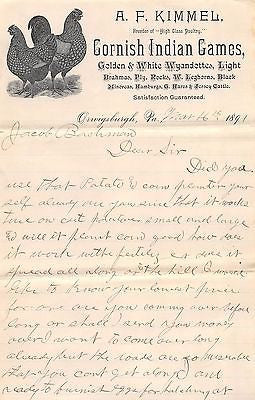 A. F. KIMMEL,
Breeder of "High Class Poultry."
Cornish Indian Games,
Golden & White Wyandottes, Light
Brahmas, Ply. Rocks, W. Leghorns, Black
Minorcas, Hamburgs, G. Hares & Jersey Cattle.
Satisfaction Guaranteed.
Orwigsburgh, Pa. Mar 16th 1891
Jacob Bowhman
Dear Sir
Did you
use that Potato & corn planter your
self already are you sure that it works
true on cut potatoes small and large
& will it plant corn good how does
it work with fertilizer does it
spread all along or the hill I would
like to know your lowest price
for one are you comming over before
long or shall I send you money
over I want to come over long
already but the roads are so miserable
that you cant get along and
ready to furnish eggs for hatching at